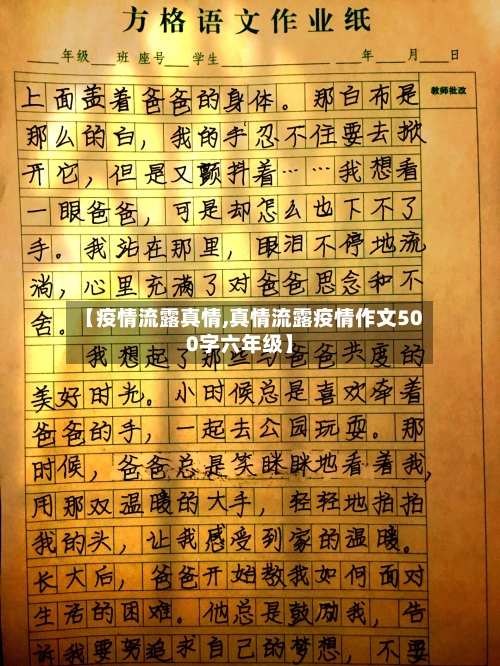 方格语文作业纸
年级 班 座号 学生 年 月 日
教师批改
上面盖着爸爸的身体。那白布是
那么的白，我的手忍不住要去掀
开它，但是又颤抖着……我想看
一眼爸爸，可是却怎么也下不了
手。我站在那里，眼泪不停地流
淌，心里充满了对爸爸思念和不
舍。
【疫情流露真情,真情流露疫情作文50
0字六年级】
我想起了那些与爸爸共度的
美好时光。小时候总是喜欢牵着
爸爸的手，一起去公园玩耍。那
时候，爸爸总是笑眯眯地看着我，
用那双温暖的大手，轻轻地拍拍
我的头，让我感受到家的温暖。
长大后，爸爸开始教我如何面对
生活的困难。他总是鼓励我，告
诉我要努追求自己的梦想，不要